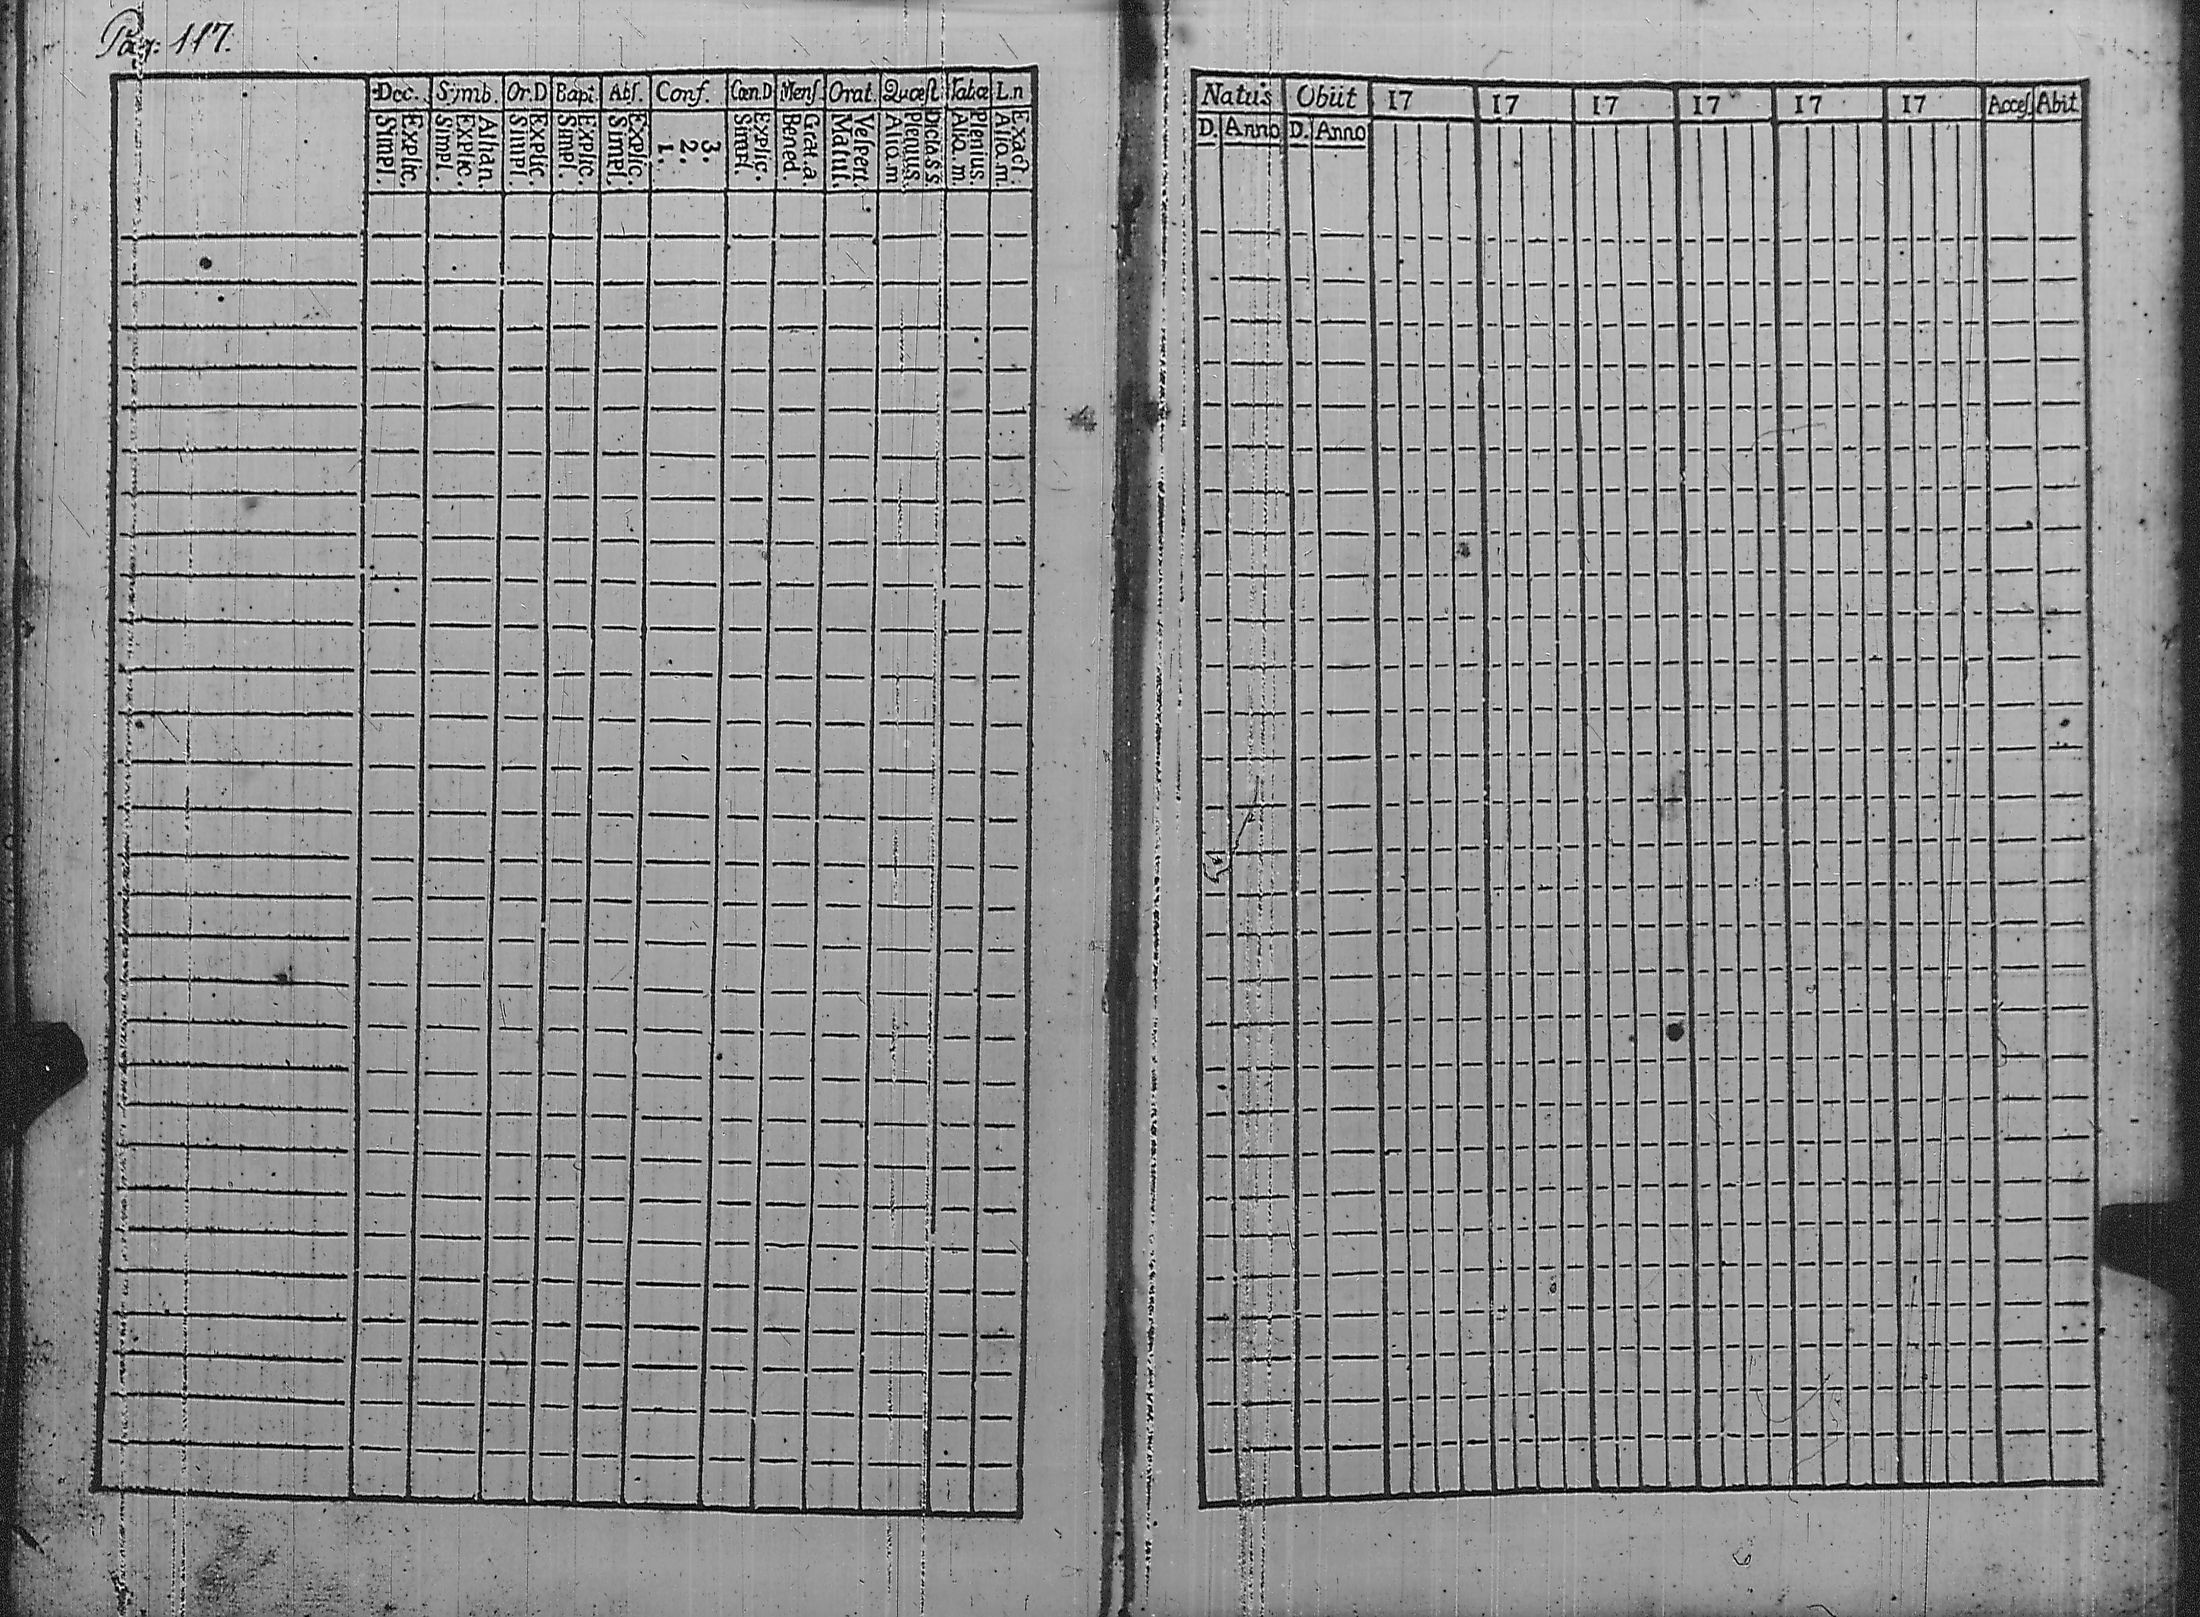 Pag: 117.
Dec. Symb. Or.D Bapt Abſ. Conf. Cœn.D Menſ Orat. Quæſt Tabæ L.n
Explic. Simpl.
Athan. Explic. Simpl.
Explic. Simpl.
Explic. Simpl.
Explic. Simpl.
3. 2. 1.
Explic. Simpl.
Grat.a. Bened.
Veſpert. Matut.
Dict.a SS. Plenius. Alio.m
Plenius. Alia.m.
Exact. Alia.m.
Natus Obiit 17 17 17 17 17 17 Acceſ. Abit
D. Anno D. Anno